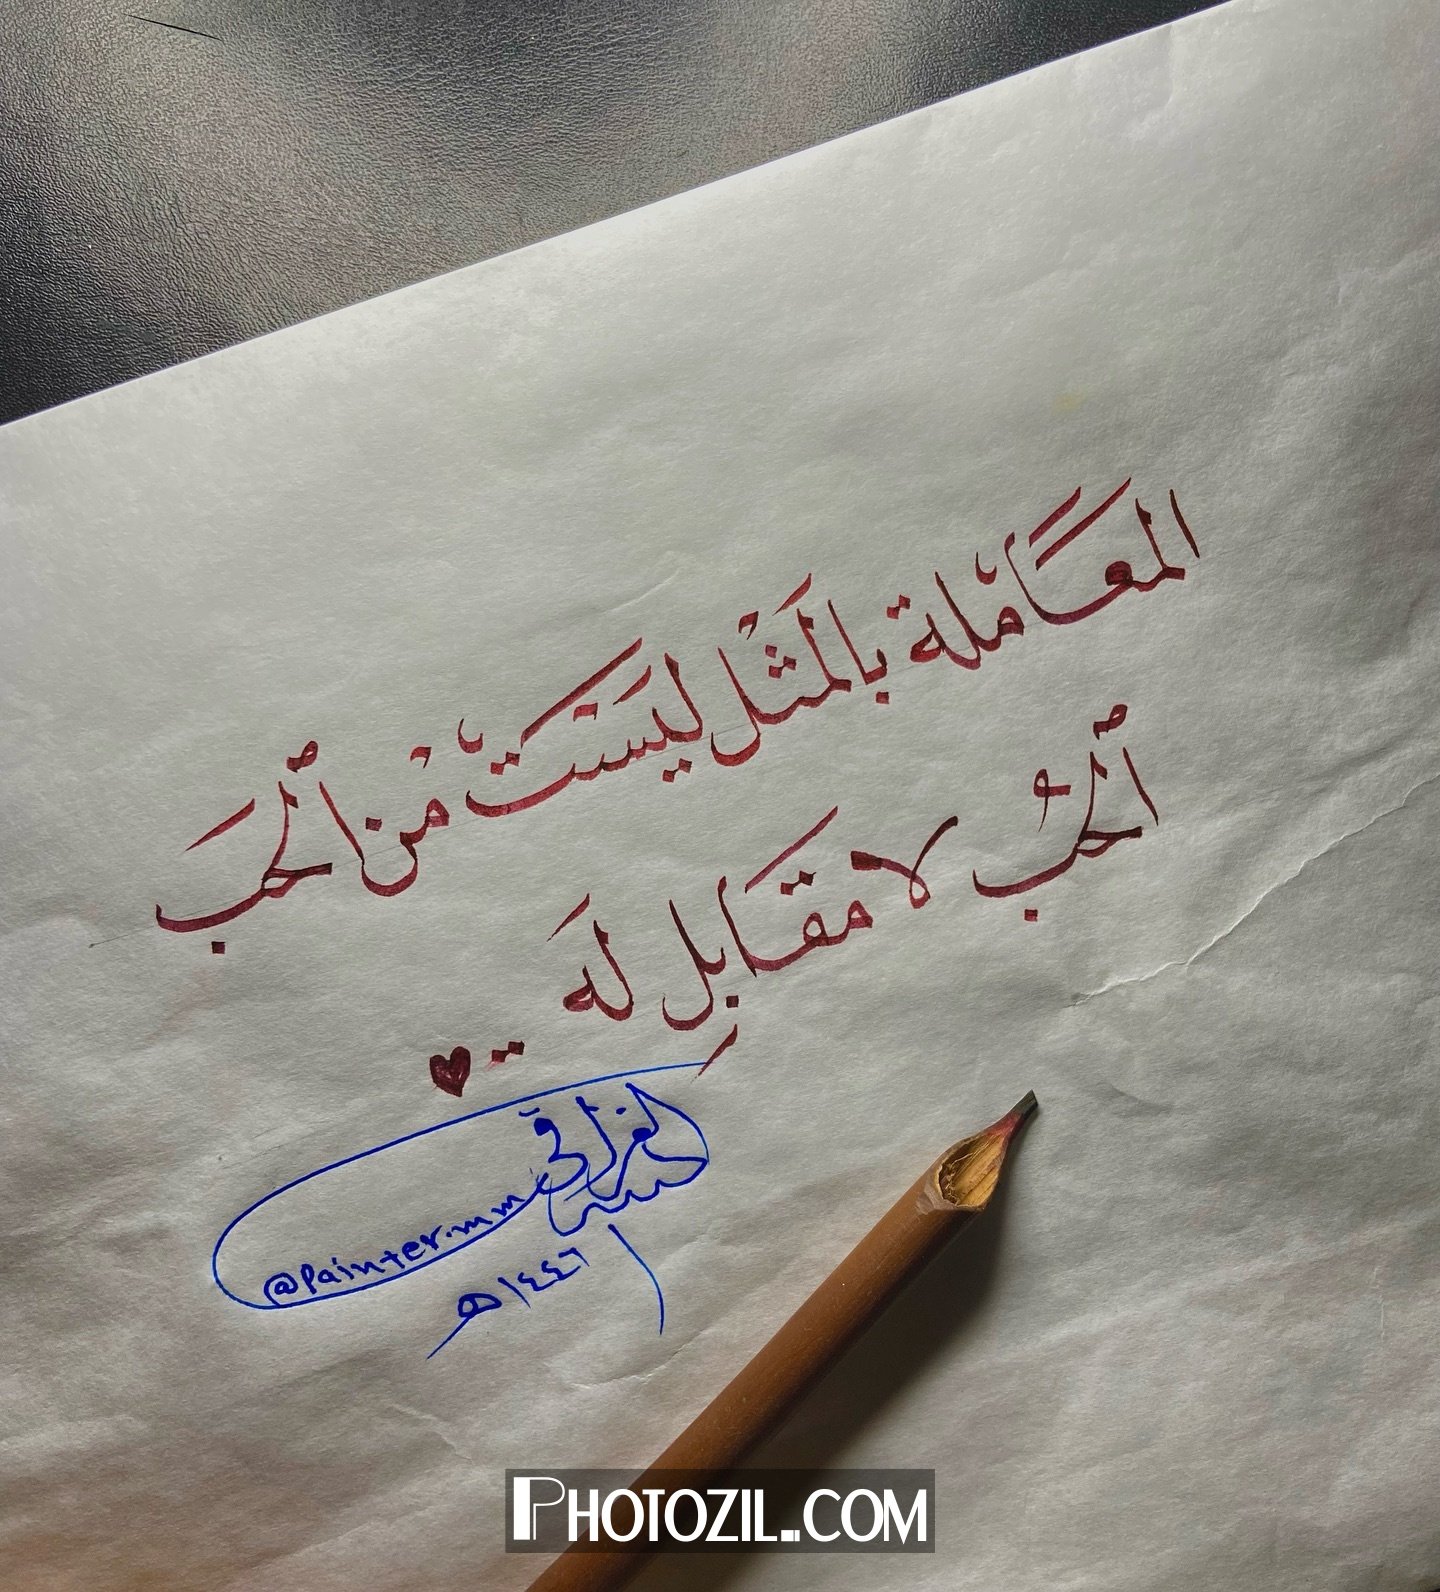 المعَاملْة بالمَثْل ليَسَتْ مْن ٱلحبَ
ٱلحُب لا مقَابلِ لَه ..
العراقي
@painter.mm
١٤٤٦هـ
PHOTOZIL.COM